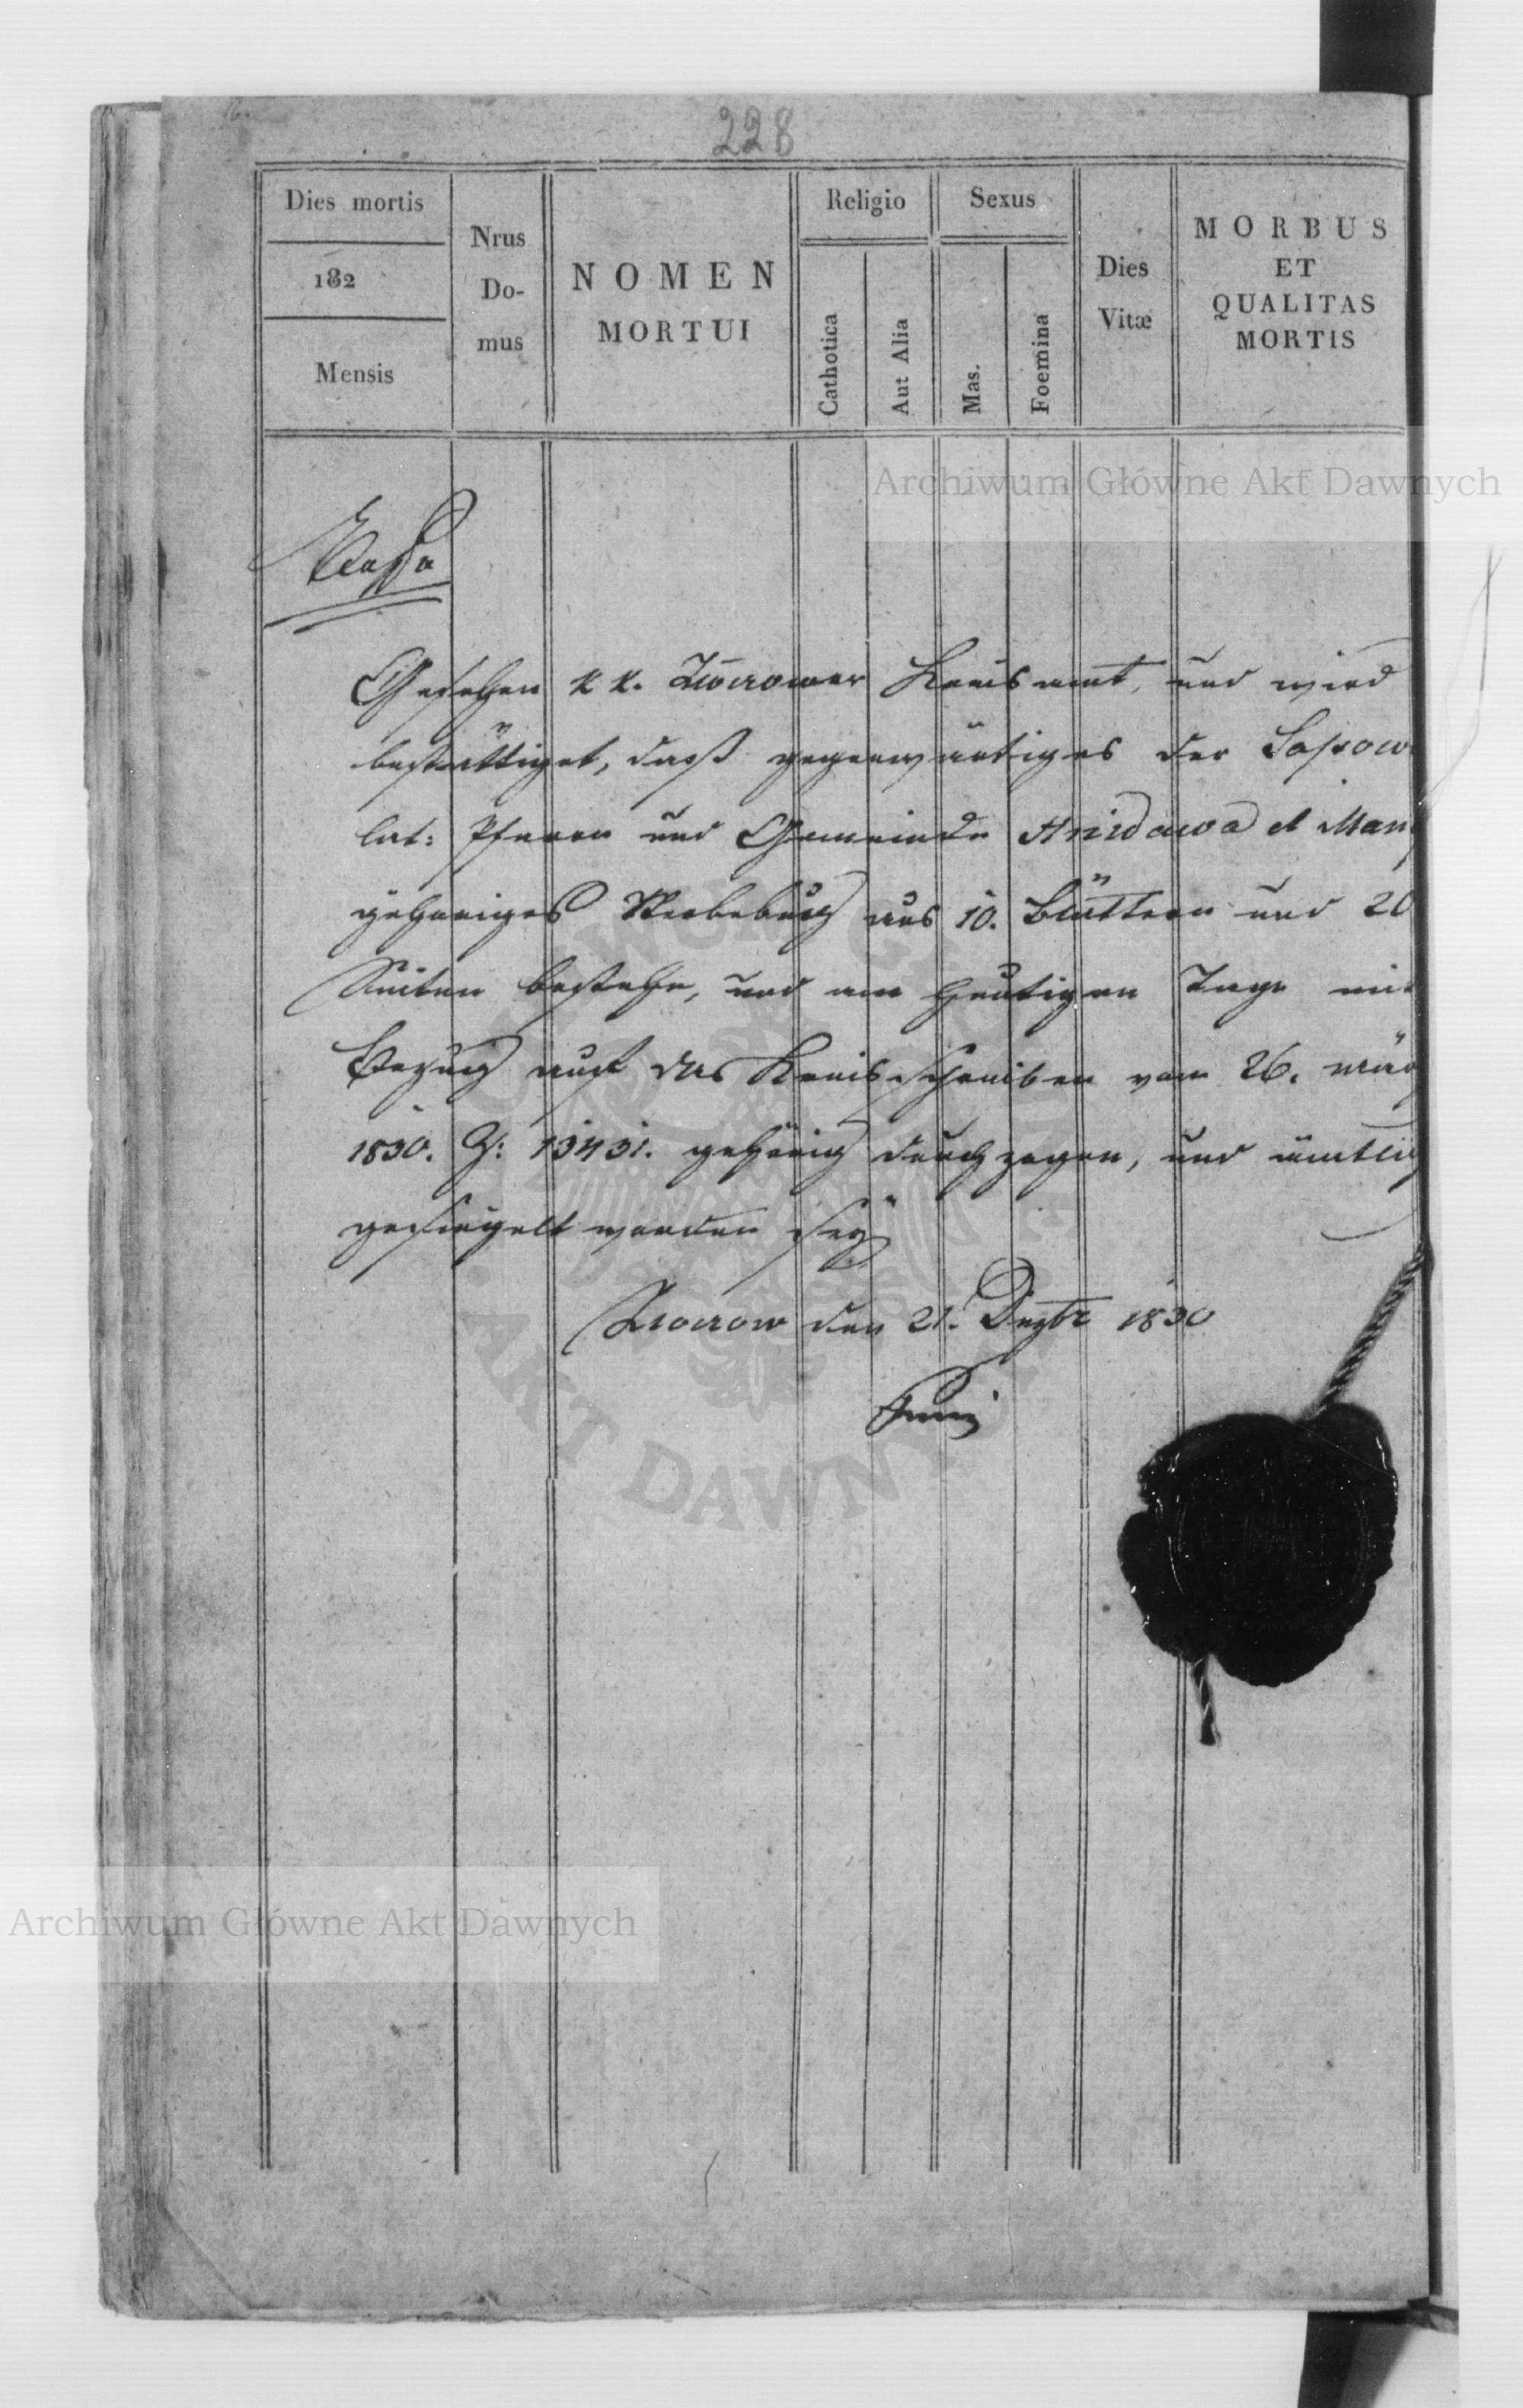 228
Dies mortis
182
Mensis
Nrus
Do-
mus
NOMEN
MORTUI
Religio
Cathotica
Aut Alia
Sexus
Mas.
Foemina
Dies
Vitæ
MORBUS
ET
QUALITAS
MORTIS
Archiwum Główne Akt Dawnych
Gesehen k k. Złoczower Kreisamt, und wird
bestättiget, daß gegenwärtiges der Sassow
lat: Pfarre und Gemeinde Hnidawa et Man
gehöriges Sterbebuch aus 10. Blättern und 20
Seiten bestehe, und am heutigen Tage mit
Bezug auf das Kreisschreiben vom 26. März
1830. Z: 13431. gehörig durchzogen, und ämtlich
gesiegelt worden sey
Złoczow den 21. Dezbr 1830
AKT DAWNYCH
Archiwum Główne Akt Dawnych